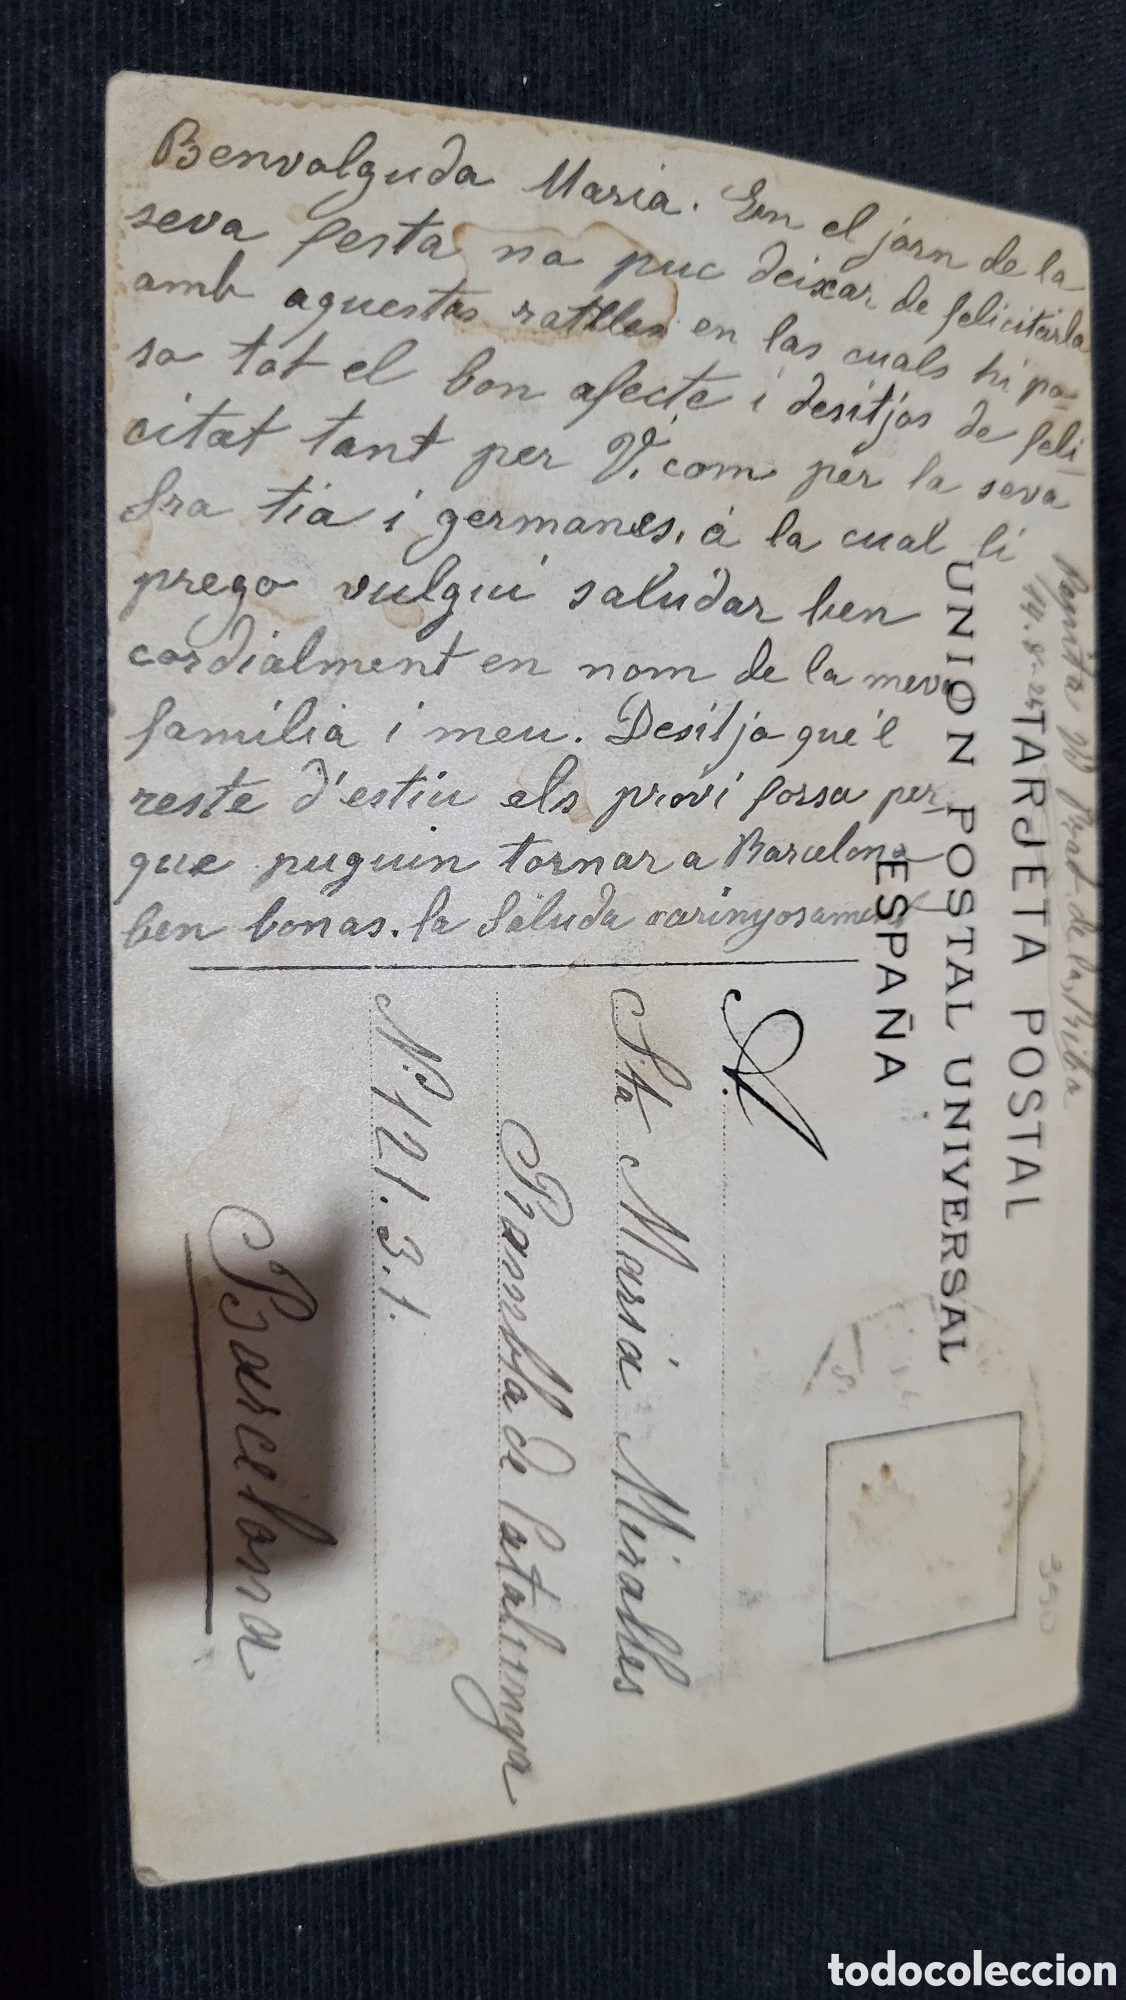 Benvolguda Maria. En el jorn de la
seva festa no puc deixar de felicitarla
amb aquestas ratlles en las cuals hi po,
so tot el bon afecte i desitjos de feli-
citat tant per V. com per la seva
Sra tia i germanes, á la cual li
prego vulgui saludar ben
cordialment en nom de la meva
familia i meu. Desitjo que'l
reste d'estiu els provi forsa per,
que puguin tornar a Barcelona
ben bonas. la Saluda carinyosament
Pepita Prat de la Riba
14-8-25
TARJETA POSTAL
UNION POSTAL UNIVERSAL
ESPAÑA
Sta Maria Miralles
Rambla de Catalunya
Nº 121. 3. 1.
Barcelona
350
todocoleccion